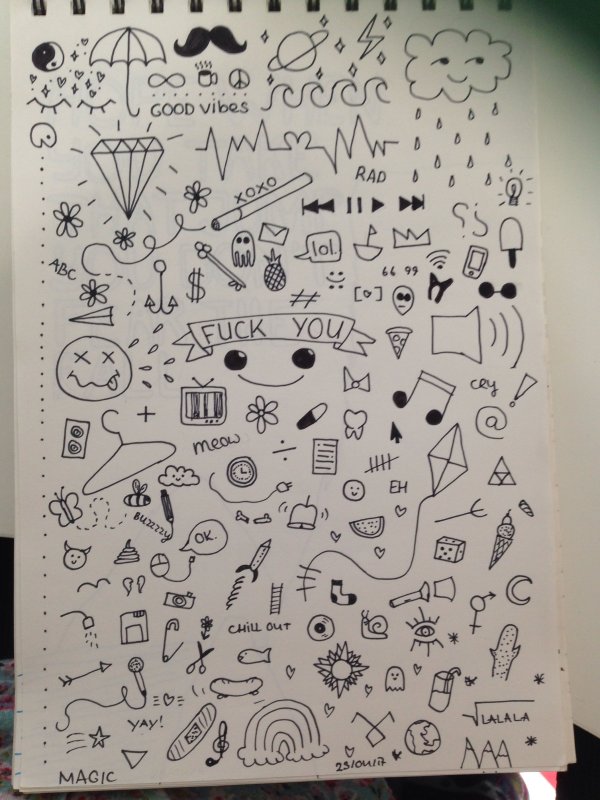 GOOD vibes
RAD
XOXO
lol.
ABC
$
66 99
#
FUCK YOU
cry
!
@
meow
EH
BUZZZZY
OK.
CHILL OUT
YAY!
LALALA
MAGIC
23/04/17